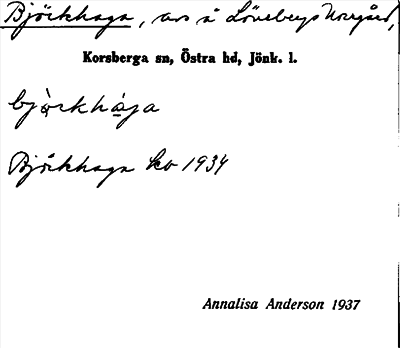 Björkhaga, avs å Löneberga Norrgård,
Korsberga sn, Östra hd, Jönk. l.
bjò̢rkhá̲ga
Björkhaga kb 1934
Annalisa Anderson 1937